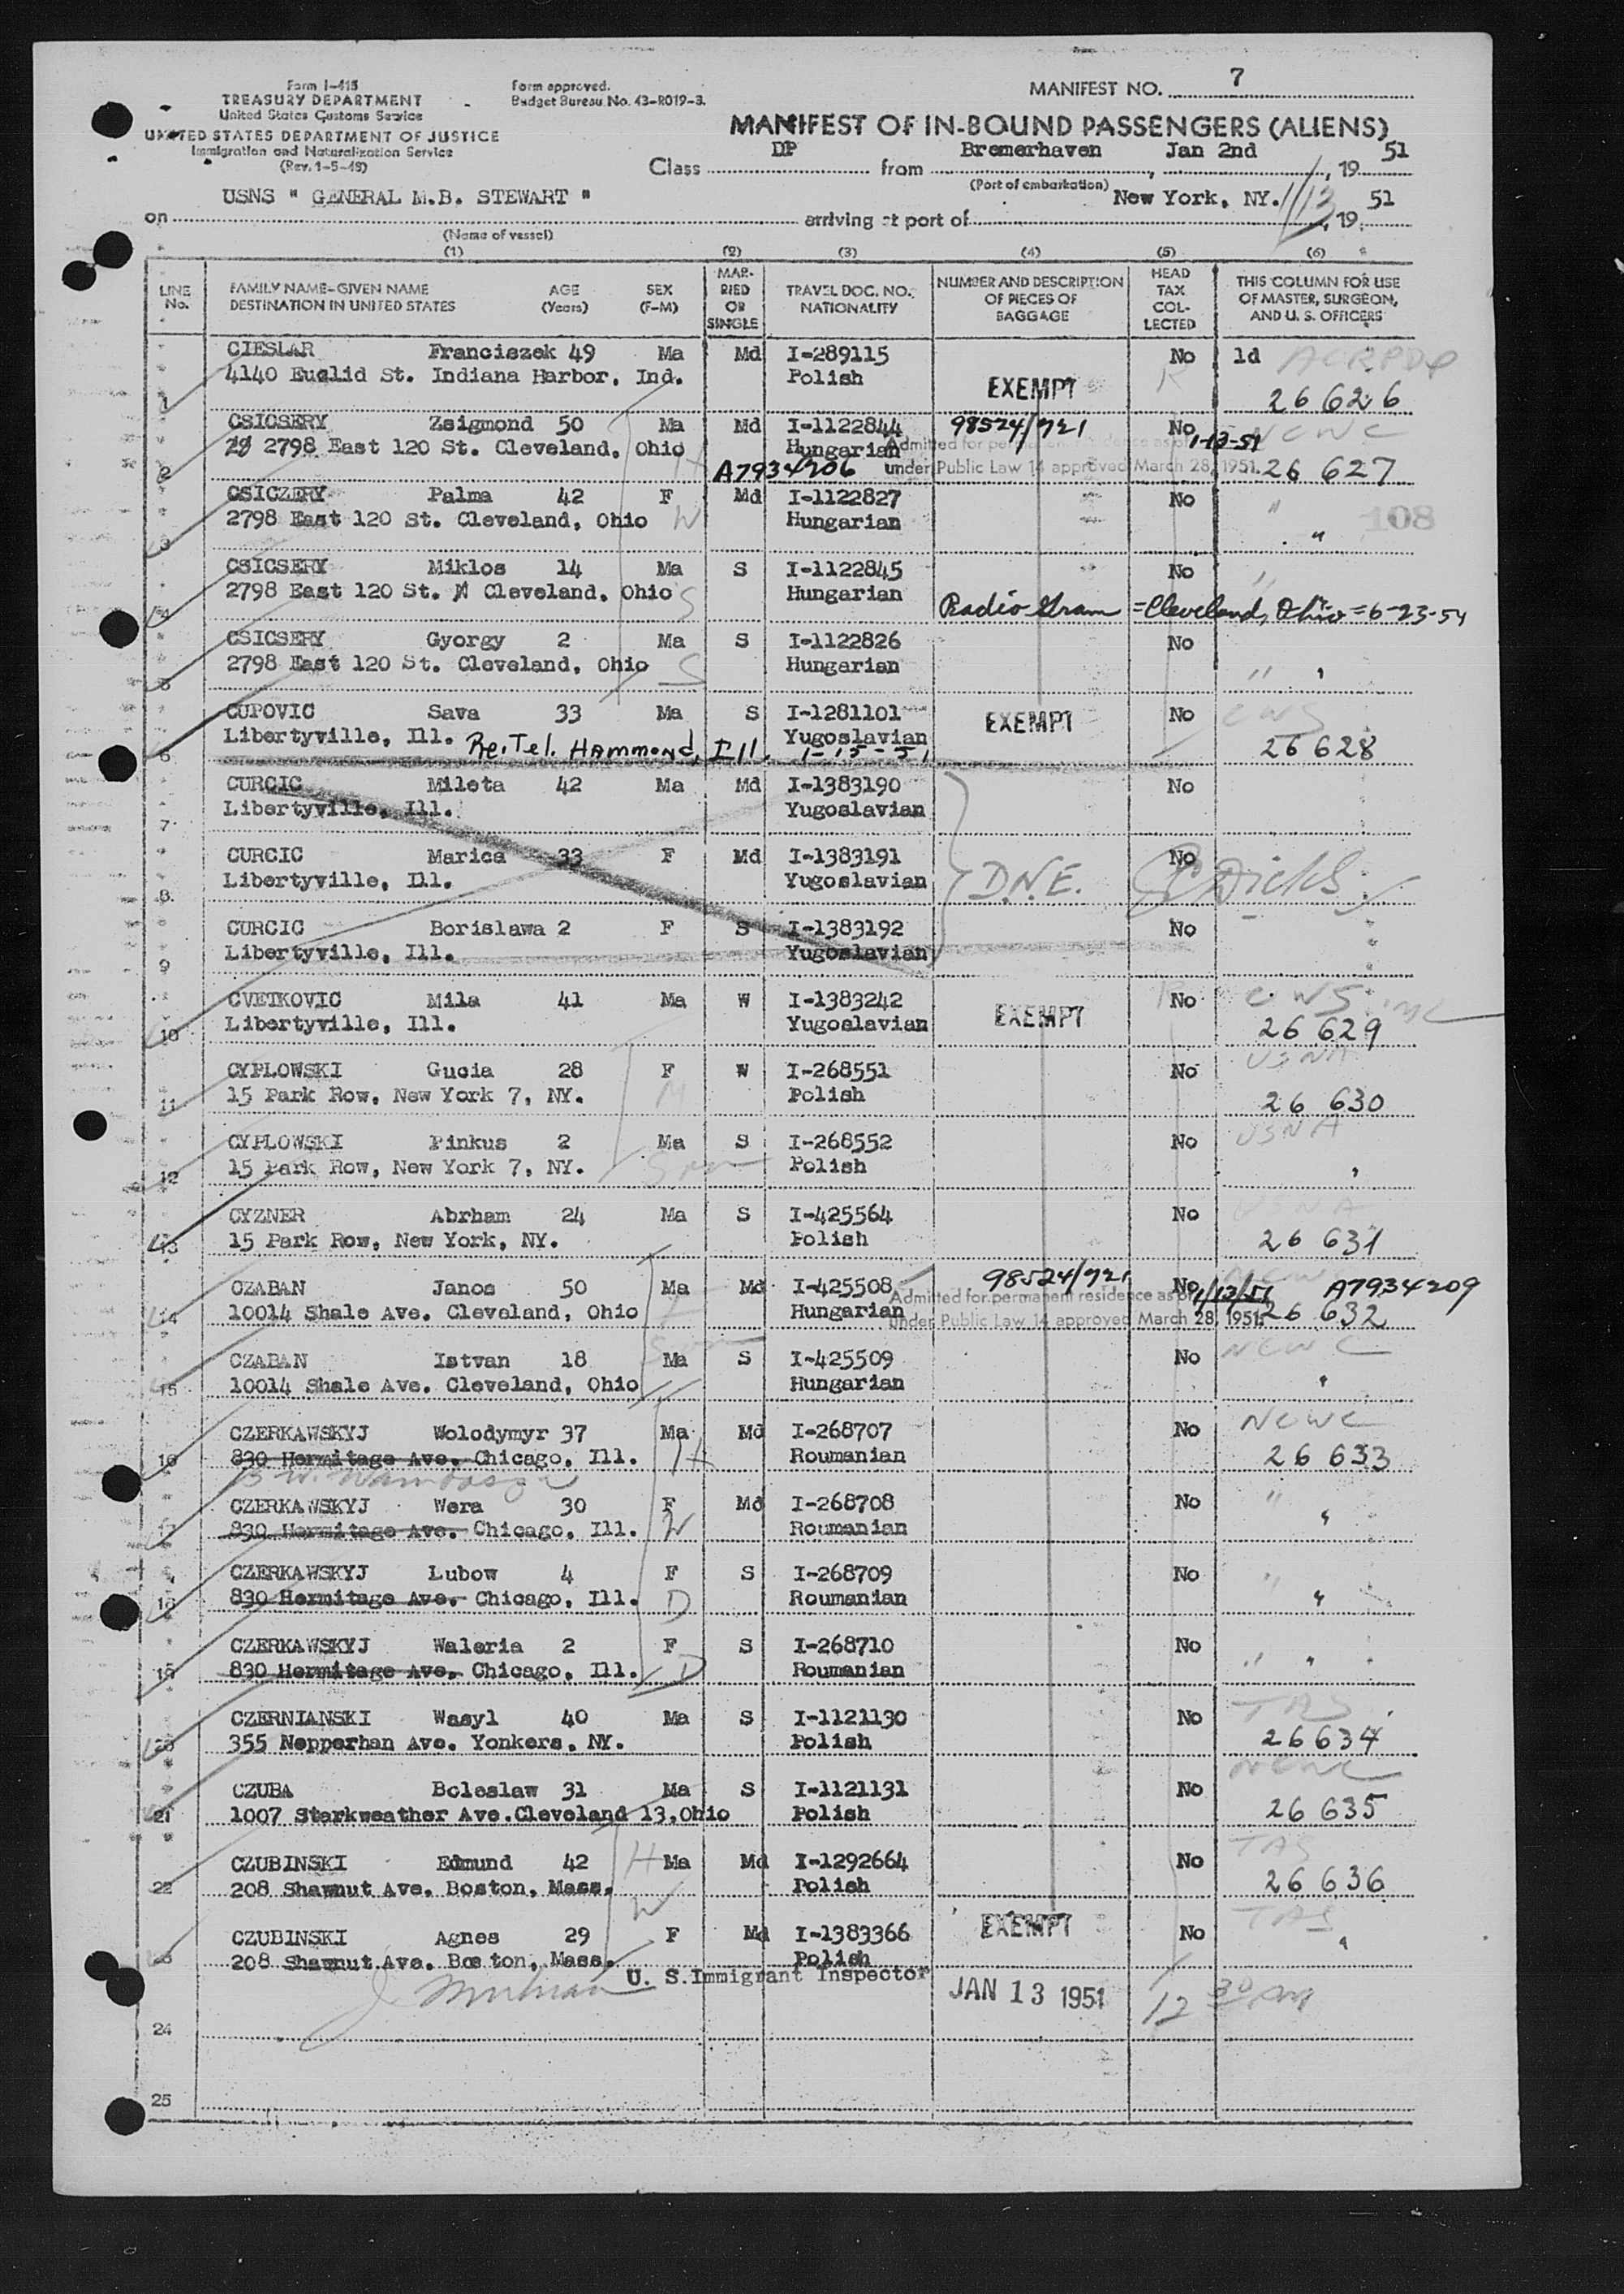 Form I-415
TREASURY DEPARTMENT
United States Customs Service
UNITED STATES DEPARTMENT OF JUSTICE
Immigration and Naturalization Service
(Rev. 1-5-48)
Form approved.
Budget Bureau No. 43-R019-3.
MANIFEST NO. 7
MANIFEST OF IN-BOUND PASSENGERS (ALIENS)
Class DP from Bremerhaven, Jan 2nd, 19 51
(Port of embarkation)
on USNS " GENERAL M.B. STEWART " arriving at port of New York, NY. 1/13, 19 51
(Name of vessel)
(1) (2) (3) (4) (5) (6)
LINE No.
FAMILY NAME-GIVEN NAME AGE SEX
DESTINATION IN UNITED STATES (Years) (F-M)
MAR-RIED OR SINGLE
TRAVEL DOC. NO. NATIONALITY
NUMBER AND DESCRIPTION OF PIECES OF BAGGAGE
HEAD TAX COL-LECTED
THIS COLUMN FOR USE OF MASTER, SURGEON, AND U. S. OFFICERS
CIESLAR Franciszek 49 Ma Md I-289115 No ld
1 4140 Euclid St. Indiana Harbor, Ind. Polish EXEMPT 26 626
CSICSERY Zsigmond 50 Ma Md I-1122844 98524/721 No 1-13-51 NCWC
2 2798 East 120 St. Cleveland, Ohio H Hungarian Admitted for permanent residence as of
A7934206 under Public Law 14 approved March 28, 1951. 26 627
CSICZERY Palma 42 F Md I-1122827 No "
3 2798 East 120 St. Cleveland, Ohio W Hungarian " 108
CSICSERY Miklos 14 Ma S I-1122845 No "
4 2798 East 120 St. Cleveland, Ohio S Hungarian Radio Gram = Cleveland, Ohio = 6-23-54
CSICSERY Gyorgy 2 Ma S I-1122826 No
5 2798 East 120 St. Cleveland, Ohio S Hungarian " "
CUPOVIC Sava 33 Ma S I-1281101 EXEMPT No CWS
6 Libertyville, Ill. Re: Tel. HAMMOND, Ill. 1-15-51 Yugoslavian 26 628
CURCIC Mileta 42 Ma Md I-1383190 No
7 Libertyville, Ill. Yugoslavian
CURCIC Marica 33 F Md I-1383191 No
8 Libertyville, Ill. Yugoslavian D.N.E.
CURCIC Borislawa 2 F S I-1383192 No
9 Libertyville, Ill. Yugoslavian
CVETKOVIC Mila 41 Ma W I-1383242 No CWS
10 Libertyville, Ill. Yugoslavian EXEMPT 26 629
CYPLOWSKI Gucia 28 F W I-268551 No USNA
11 15 Park Row, New York 7, NY. M Polish 26 630
CYPLOWSKI Pinkus 2 Ma S I-268552 No USNA
12 15 Park Row, New York 7, NY. Son Polish "
CYZNER Abrham 24 Ma S I-425564 No USNA
13 15 Park Row, New York, NY. Polish 26 631
CZABAN Janos 50 Ma Md I-425508 98524/721 No 1/13/51 A7934209
14 10014 Shale Ave. Cleveland, Ohio Hungarian Admitted for permanent residence as of
under Public Law 14 approved March 28, 1951. 26 632
CZABAN Istvan 18 Son Ma S I-425509 No NCWC
15 10014 Shale Ave. Cleveland, Ohio Hungarian "
CZERKAWSKYJ Wolodymyr 37 Ma Md I-268707 No NCWC
16 830 Hermitage Ave. Chicago, Ill. H Roumanian 26 633
CZERKAWSKYJ Wera 30 F Md I-268708 No "
17 830 Hermitage Ave. Chicago, Ill. W Roumanian "
CZERKAWSKYJ Lubow 4 F S I-268709 No "
18 830 Hermitage Ave. Chicago, Ill. D Roumanian "
CZERKAWSKYJ Waleria 2 F S I-268710 No
19 830 Hermitage Ave. Chicago, Ill. D Roumanian " "
CZERNIANSKI Wasyl 40 Ma S I-1121130 No TAS
20 355 Nepperhan Ave. Yonkers, NY. Polish 26 634
CZUBA Boleslaw 31 Ma S I-1121131 No NCWC
21 1007 Starkweather Ave.Cleveland 13,Ohio Polish 26 635
CZUBINSKI Edmund 42 H Ma Md I-1292664 No TAS
22 208 Shawmut Ave. Boston, Mass. Polish 26 636
CZUBINSKI Agnes 29 W F Md I-1383366 EXEMPT No TAS
23 208 Shawmut Ave. Boston, Mass. Polish "
U. S.Immigrant Inspector JAN 13 1951 12 30 PM
24
25